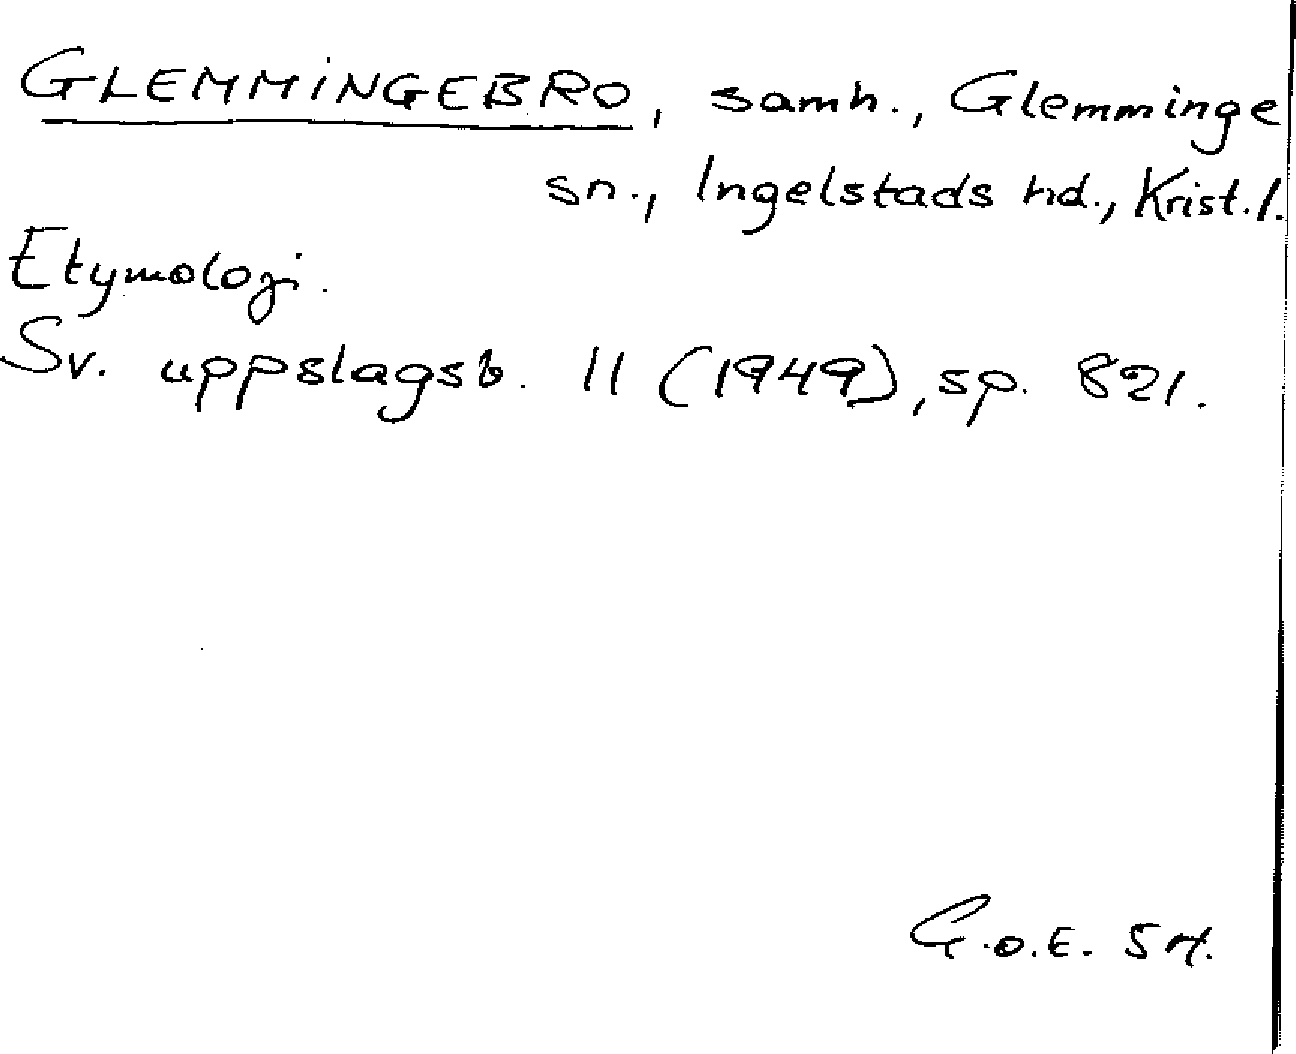 GLEMMINGEBRO, samh., Glemminge
sn., Ingelstads hd., Krist.l.
Etymologi.
Sv. uppslagsb. 11 (1949), sp. 821.
G.o.E. 54.